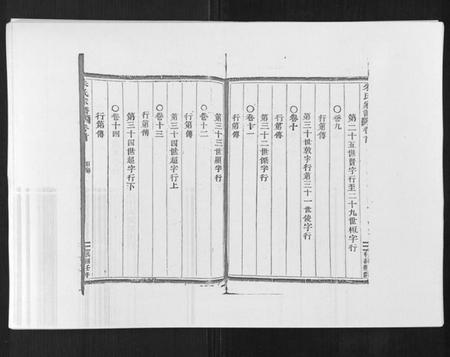 第二十五世晉字行至二十九世恆字行
○卷九
行第傳
第三十世敦字行第三十一世倫字行
○卷十
行第傳
第三十二世傑字行
○卷十一
行第傳
第三十三世顯字行
○卷十二
行第傳
第三十四世超字行上
○卷十三
行第傳
第三十四世超字行下
○卷十四
行第傳